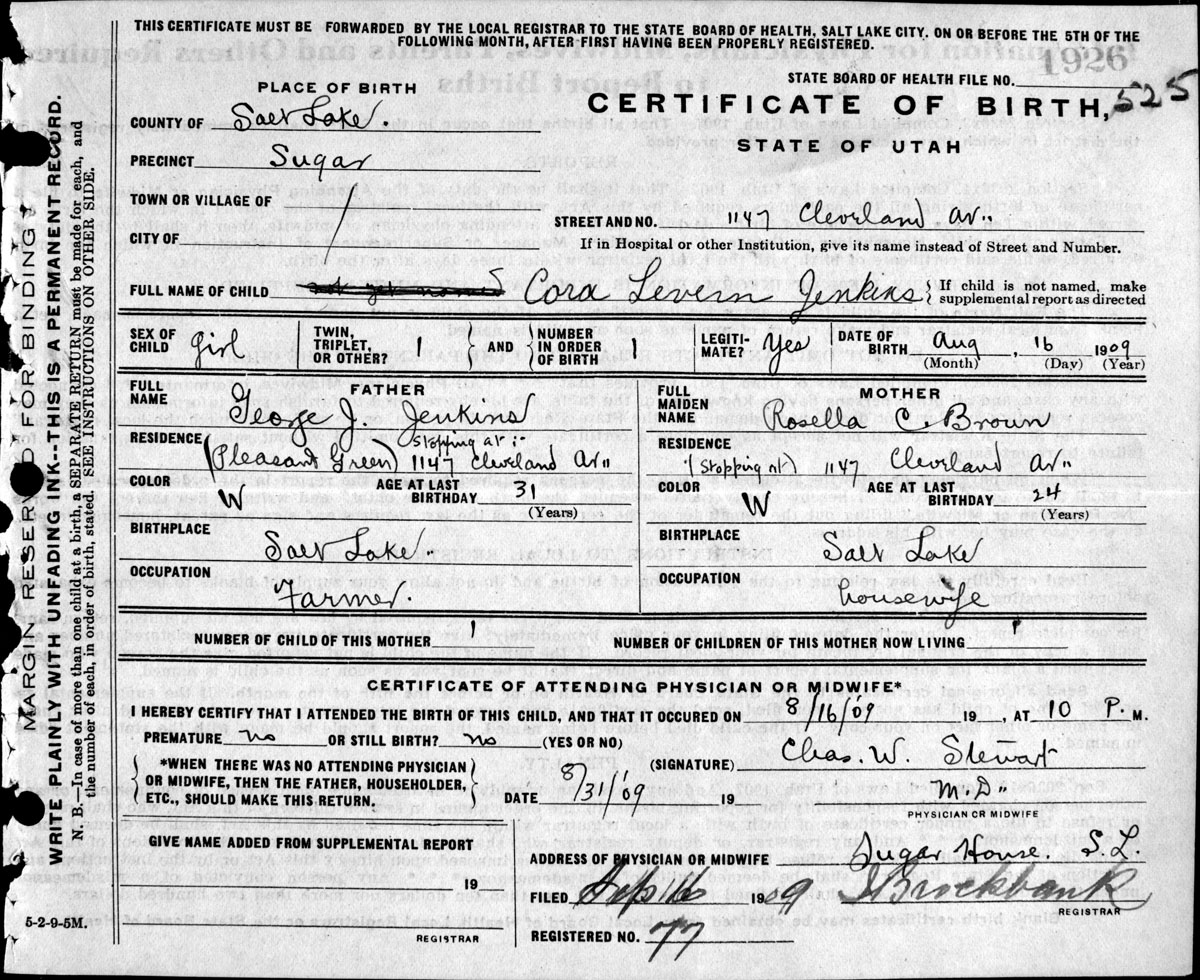 THIS CERTIFICATE MUST BE FORWARDED BY THE LOCAL REGISTRAR TO THE STATE BOARD OF HEALTH, SALT LAKE CITY. ON OR BEFORE THE 5TH OF THE
FOLLOWING MONTH, AFTER FIRST HAVING BEEN PROPERLY REGISTERED.
STATE BOARD OF HEALTH FILE NO. 1926
525
PLACE OF BIRTH
CERTIFICATE OF BIRTH,
STATE OF UTAH
COUNTY OF Salt Lake.
PRECINCT Sugar
TOWN OR VILLAGE OF
STREET AND NO. 1147 Cleveland Av"
CITY OF
If in Hospital or other Institution, give its name instead of Street and Number.
FULL NAME OF CHILD not yet named Cora Levern Jenkins { If child is not named, make
supplemental report as directed
SEX OF CHILD girl TWIN, TRIPLET, OR OTHER? 1 } AND { NUMBER IN ORDER OF BIRTH 1 LEGITI- MATE? Yes DATE OF BIRTH Aug, 16 1909
(Month) (Day) (Year)
FATHER
FULL NAME George J. Jenkins
RESIDENCE Stopping at :-
(Pleasant Green) 1147 Cleveland Av"
COLOR W AGE AT LAST BIRTHDAY 31
(Years)
BIRTHPLACE
Salt Lake.
OCCUPATION
Farmer.
MOTHER
FULL MAIDEN NAME Rosella C. Brown
RESIDENCE
(Stopping at) 1147 Cleveland Av"
COLOR W AGE AT LAST BIRTHDAY 24
(Years)
BIRTHPLACE
Salt Lake
OCCUPATION
housewife
NUMBER OF CHILD OF THE MOTHER 1 NUMBER OF CHILDREN OF THIS MOTHER NOW LIVING 1
CERTIFICATE OF ATTENDING PHYSICIAN OR MIDWIFE*
I HEREBY CERTIFY THAT I ATTENDED THE BIRTH OF THIS CHILD, AND THAT IT OCCURED ON 8/16/09 19 , AT 10 P. M.
PREMATURE no OR STILL BIRTH? no (YES OR NO)
(SIGNATURE) Chas. W. Stewart
{ *WHEN THERE WAS NO ATTENDING PHYSICIAN
OR MIDWIFE, THEN THE FATHER, HOUSEHOLDER,
ETC., SHOULD MAKE THIS RETURN. }
DATE 8/31/09 19 M.D.
PHYSICIAN OR MIDWIFE
GIVE NAME ADDED FROM SUPPLEMENTAL REPORT
19
REGISTRAR
ADDRESS OF PHYSICIAN OR MIDWIFE Sugar House. S.L.
FILED Sep 6 1909 J Brockbank
REGISTRAR
REGISTERED NO. 77
5-2-9-5M.
MARGIN RESERVED FOR BINDING
WRITE PLAINLY WITH UNFADING INK--THIS IS A PERMANENT RECORD.
N. B.—In case of more than one child at a birth, a SEPARATE RETURN must be made for each, and
the number of each, in order of birth, stated. SEE INSTRUCTIONS ON OTHER SIDE.